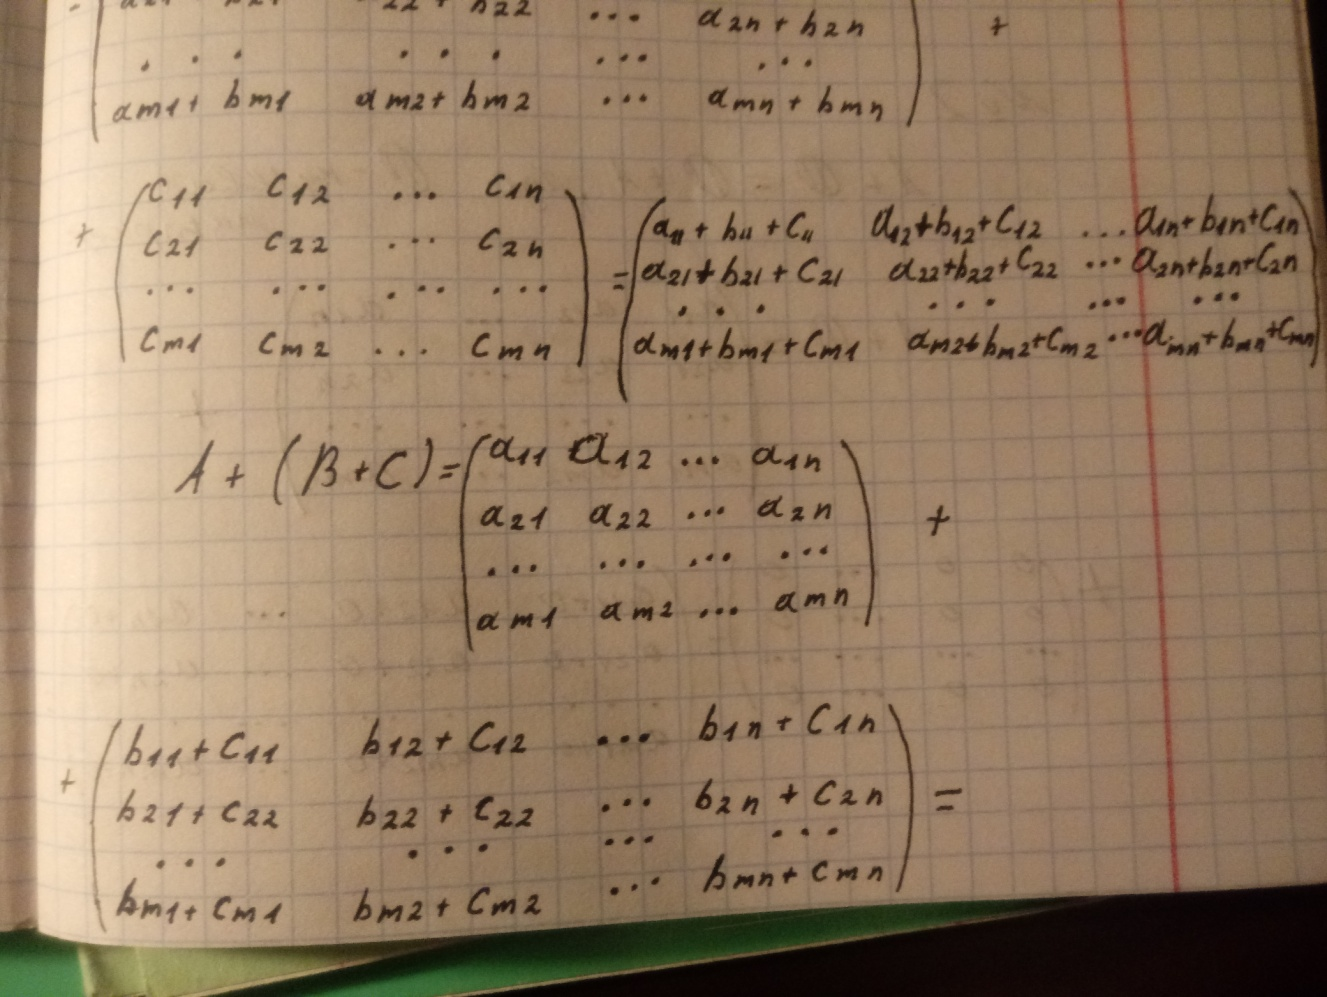 a21 + b21 a22 + b22 ... a2n + b2n +
... ... ... ...
am1 + bm1 am2 + bm2 ... amn + bmn
+ ( c11 c12 ... c1n ) = ( a11 + b11 + c11 a12+b12+c12 ... a1n+b1n+c1n )
c21 c22 ... c2n a21+b21+c21 a22+b22+c22 ... a2n+b2n+c2n
... ... ... ... ... ... ... ...
cm1 cm2 ... cmn am1+bm1+cm1 am2+bm2+cm2 ... amn+bmn+cmn
A + (B+C) = ( a11 a12 ... a1n
a21 a22 ... a2n ) +
... ... ... ...
am1 am2 ... amn
+ ( b11+c11 b12+c12 ... b1n+c1n
b21+c22 b22+c22 ... b2n+c2n ) =
... ... ... ...
bm1+cm1 bm2+cm2 ... bmn+cmn